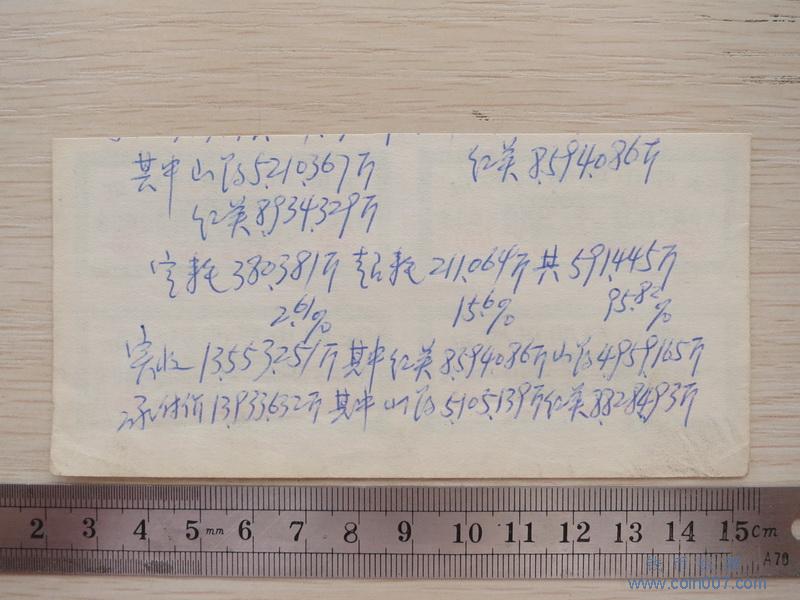 其中山阳5,210,367斤 红英8,594,086斤
红英8,934,329斤
定耗380,381斤 超耗211,064斤 共591,445斤
2.61% 15.6% 95.82%
实收13,553,251斤 其中红英8,594,086斤 山阳4,959,165斤
付价13,933,632斤 其中山阳5,105,139斤 红英8,828,493斤
2 3 4 5 mm 6 7 8 9 10 11 12 13 14 15cm
A70
www.coin007.com